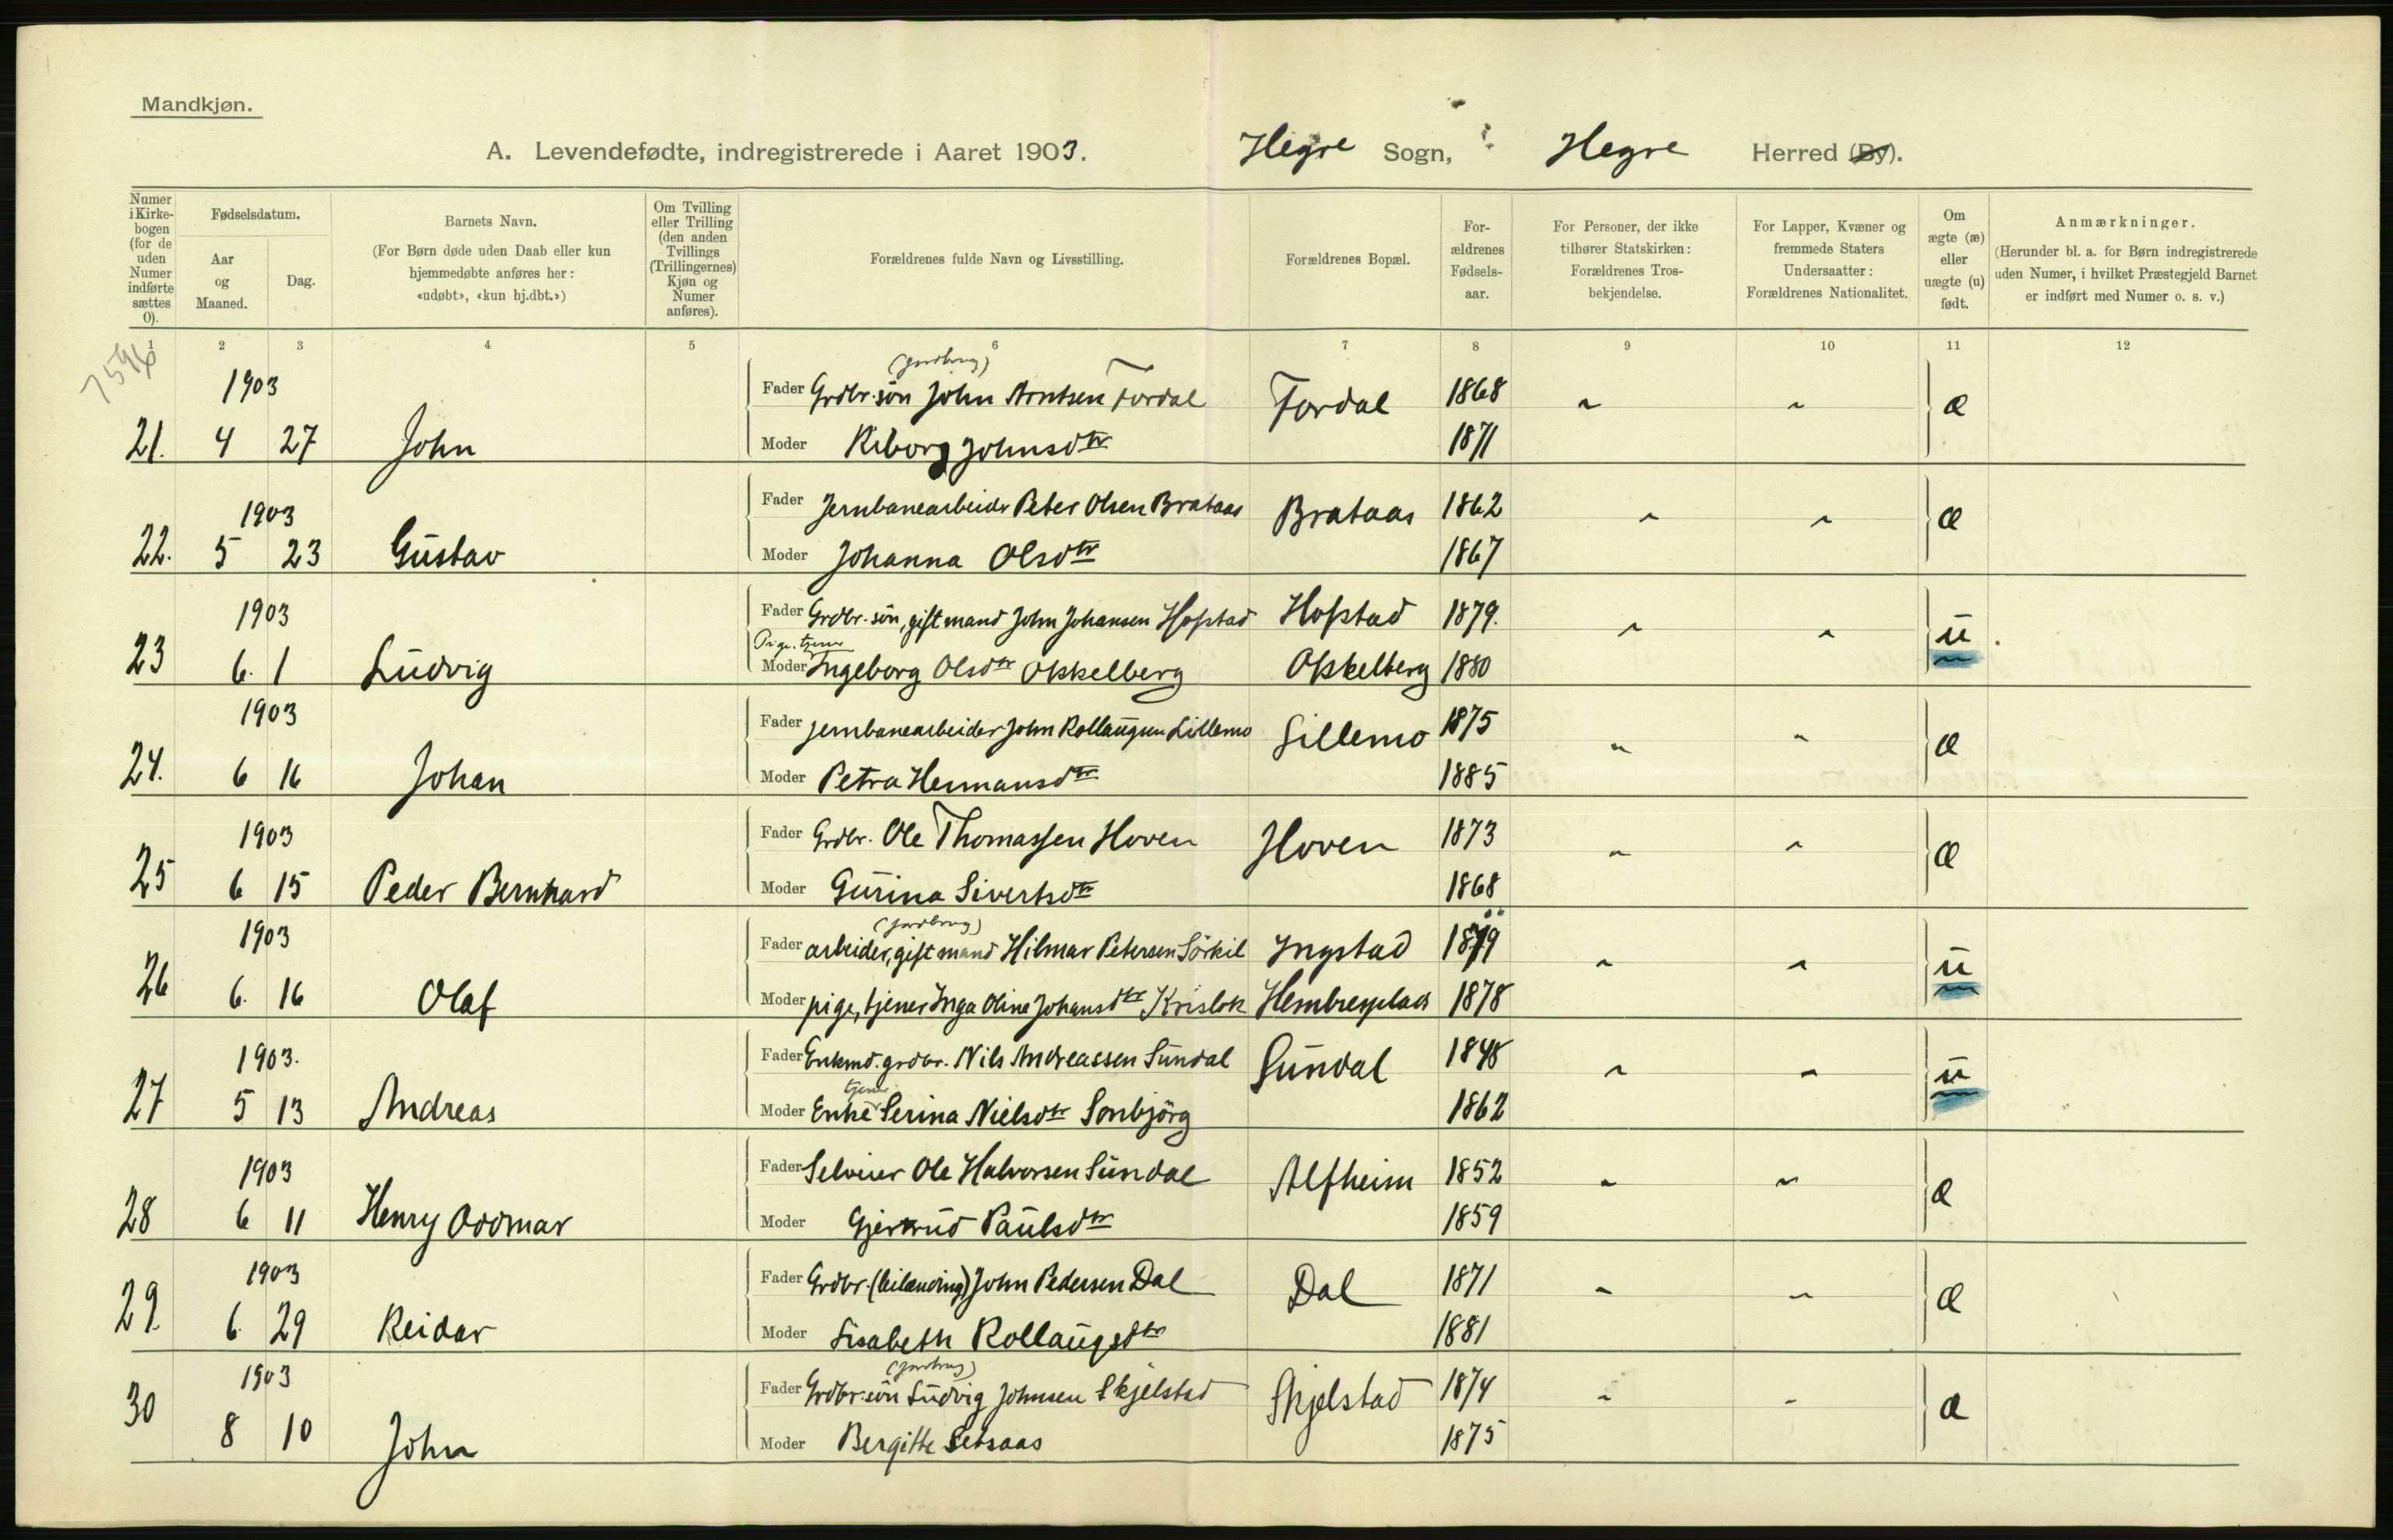 Mandkjøn.
A. Levendefødte, indregistrerede i Aaret 1903. Hegre Sogn, Hegre Herred (By).
Numer i Kirkebogen (for de uden Numer indførte sættes 0).
Fødselsdatum.
Aar og Maaned.
Dag.
Barnets Navn.
(For Børn døde uden Daab eller kun hjemmedøbte anføres her: «udøbt», «kun hj.dbt.»)
Om Tvilling eller Trilling (den anden Tvillings (Trillingernes) Kjøn og Numer anføres).
Forældrenes fulde Navn og Livsstilling.
Forældrenes Bopæl.
Forældrenes Fødselsaar.
For Personer, der ikke tilhører Statskirken: Forældrenes Trosbekjendelse.
For Lapper, Kvæner og fremmede Staters Undersaatter: Forældrenes Nationalitet.
Om ægte (æ) eller uægte (u) født.
Anmærkninger.
(Herunder bl. a. for Børn indregistrerede uden Numer, i hvilket Præstegjeld Barnet er indført med Numer o. s. v.)
1 2 3 4 5 6 7 8 9 10 11 12
1903 (jordbrug)
Fader Grdbr. søn John Arntsen Fordal Fordal 1868 æ
21. 4 27 John Moder Kiborg Johnsdtr 1871
1903 Fader Jernbanearbeider Peter Olsen Brataas Brataas 1862 æ
22. 5 23 Gustav Moder Johanna Olsdtr 1867
1903 Fader Grdbr. søn, gift mand John Johansen Hofstad Hofstad 1879. u
Pige, tjener
23 6. 1 Ludvig Moder Ingeborg Olsdtr Okkelberg Okkelberg 1880
1903 Fader Jernbanearbeider John Rollaugsen Lillemo Lillemo 1875 æ
24. 6 16 Johan Moder Petra Hermansdtr 1885
1903 Fader Grdbr. Ole Thomassen Hoven Hoven 1873 æ
25 6 15 Peder Bernhard Moder Gurina Sivertsdtr 1868
1903 (jordbrug)
Fader arbeider, gift mand Hilmar Petersen Sørkil Ingstad 1879 u
26 6. 16 Olaf Moder pige, tjener Inga Oline Johansdtr Hembresplads 1878
1903. Fader Enkmd. grdbr. Nils Andreassen Sundal Sundal 1848 u
tjener
27 5 13 Andreas Moder Enke Serina Nielsdtr Sonbjørg 1862
1903 Fader Selveier Ole Halvorsen Sundal Alfheim 1852 æ
28 6 11 Henry Oddmar Moder Gjertrud Paulsdtr 1859
1903 Fader Grdbr. (leilænding) John Pedersen Dal Dal 1871 æ
29. 6. 29 Reidar Moder Lisabeth Rollaugsdtr 1881
1903 (jordbrug)
Fader Grdbr. søn Ludvig Johnsen Skjelstad Skjelstad 1874 æ
30 8 10 John Moder Bergitte Setsaas 1875